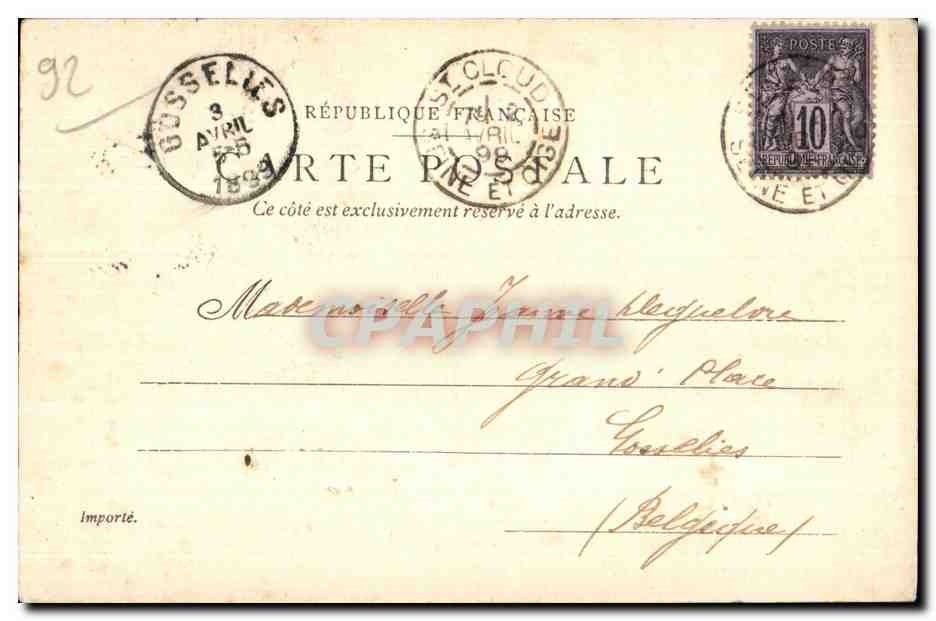 92
GOSSELIES
3
AVRIL
1899
ST CLOUD
2
AVRIL
99
SEINE ET OISE
POSTE
10
REPUBLIQUE FRANÇAISE
SEINE ET
RÉPUBLIQUE FRANÇAISE
CARTE POSTALE
Ce côté est exclusivement réservé à l'adresse.
Mademoiselle Jeanne
CPAPHIL
Grand' Place
Gosselies
(Belgique)
Importé.